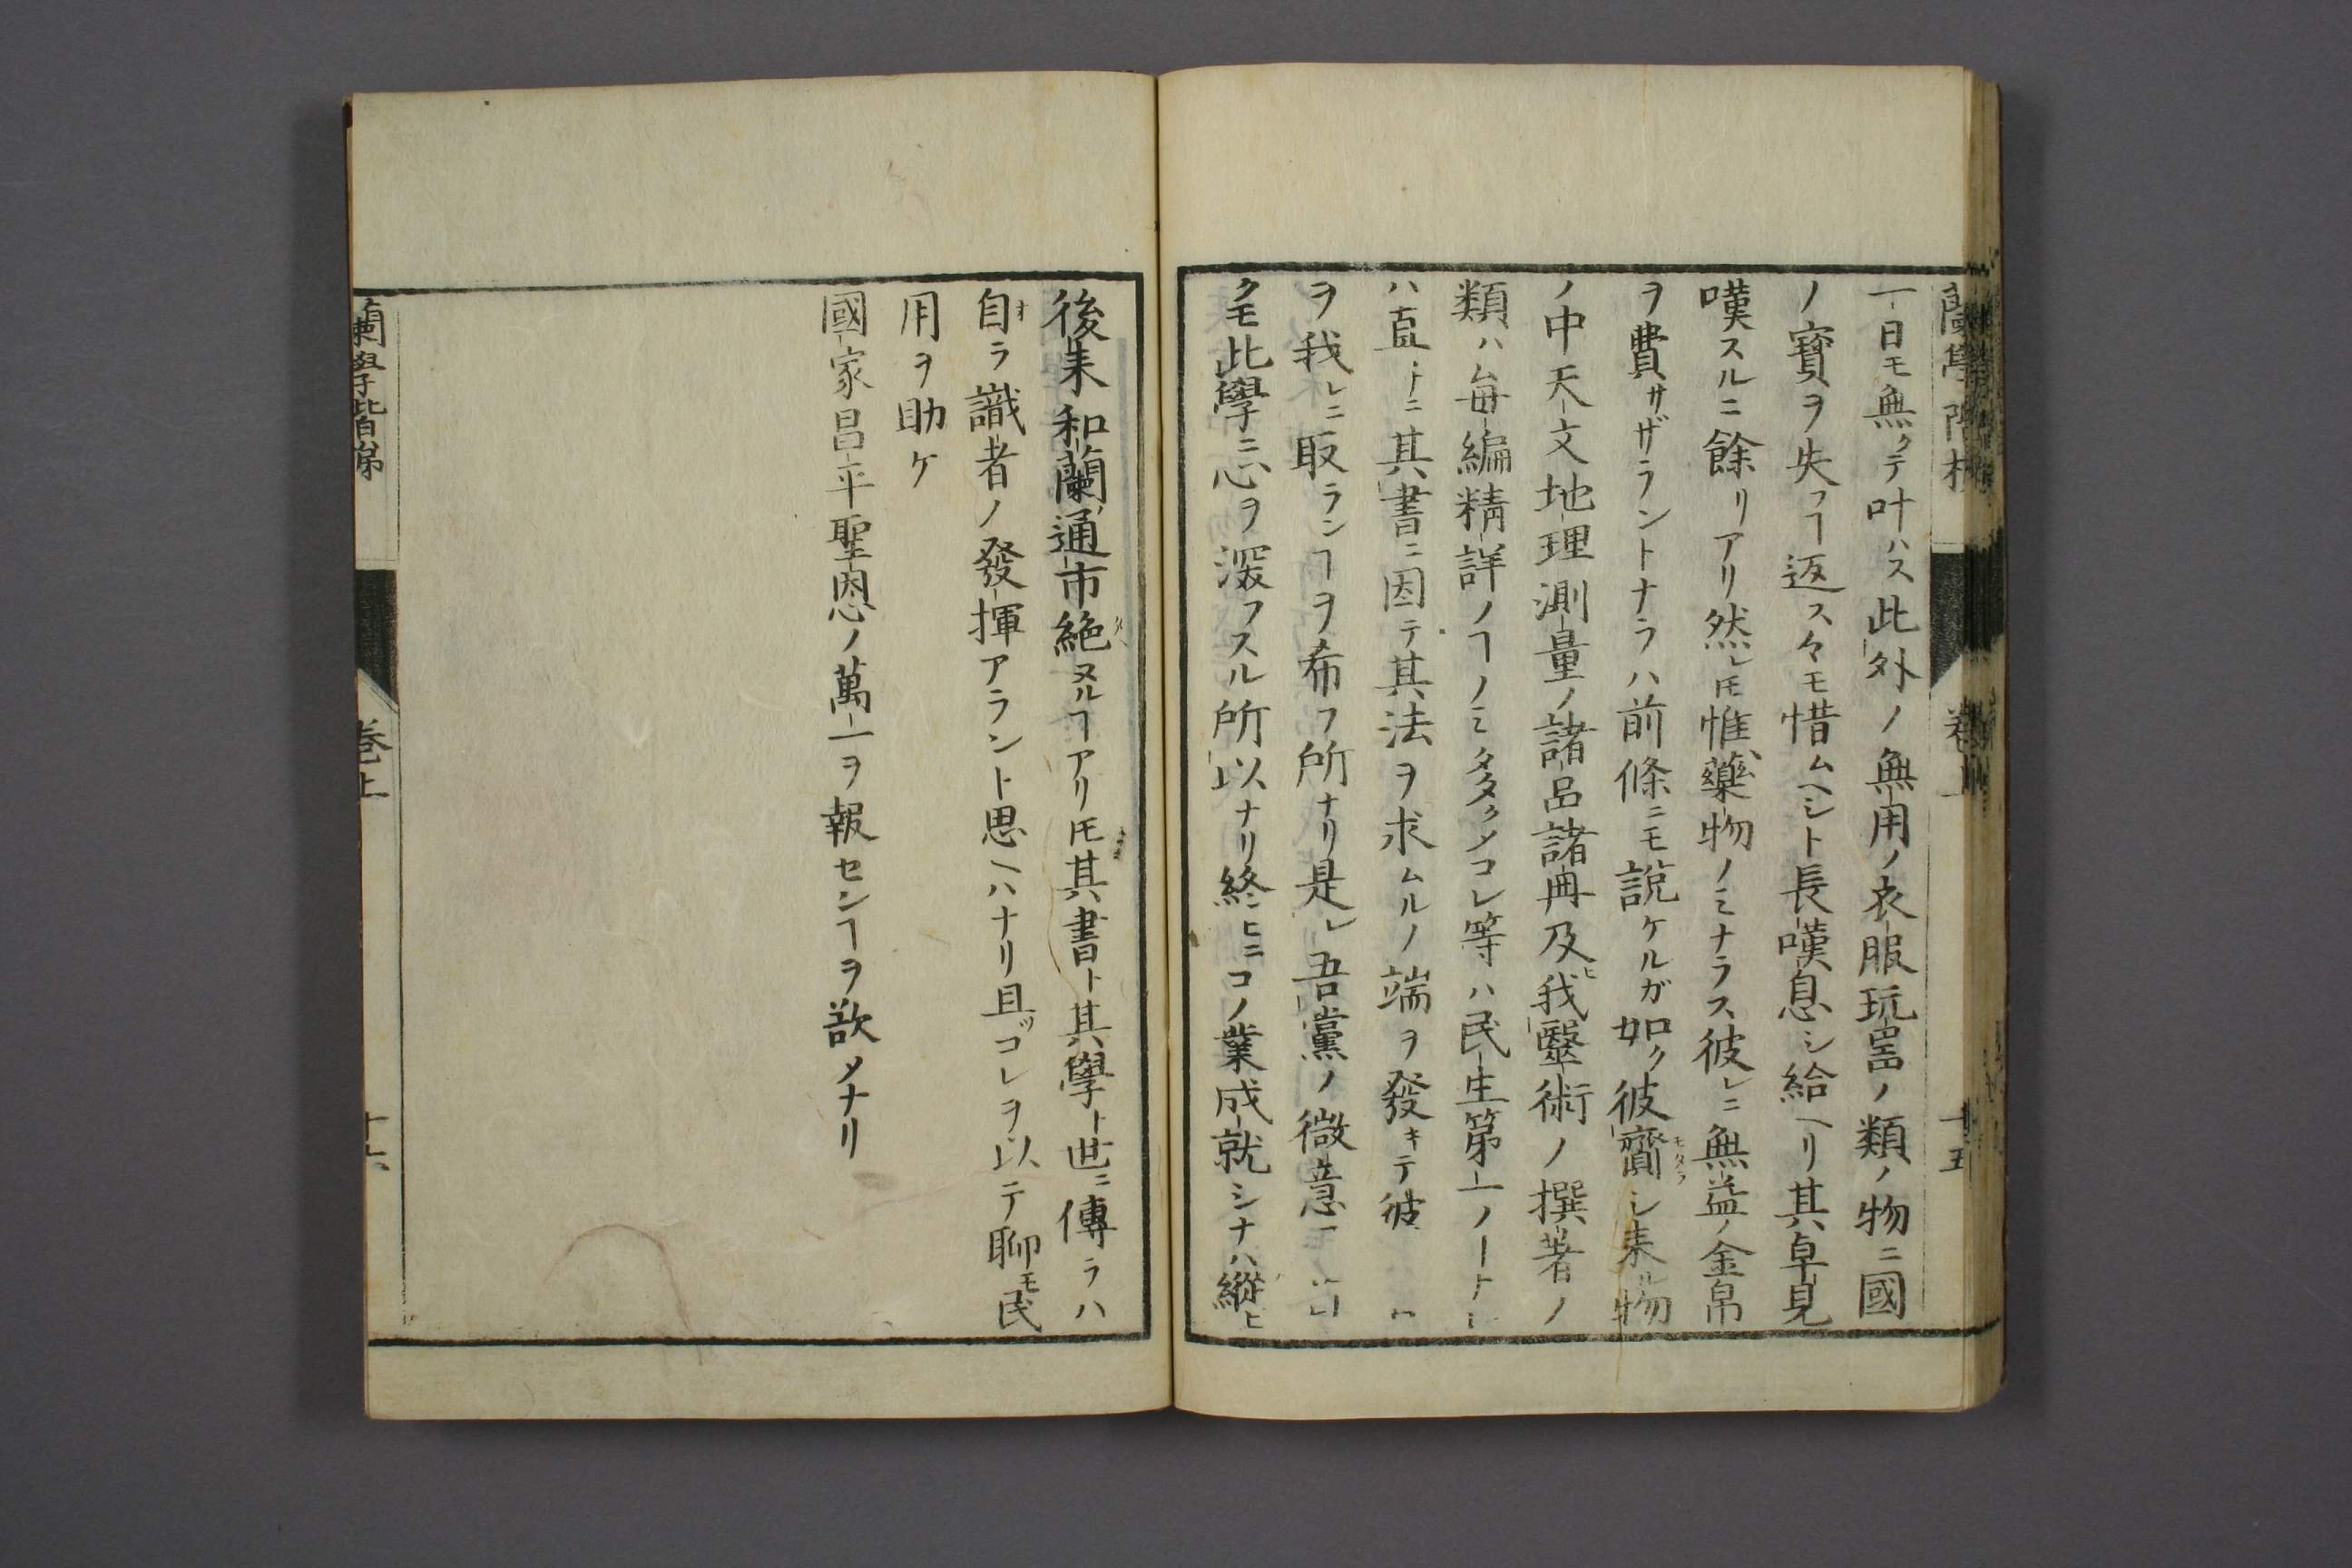 一日モ無クテ叶ハス此外ノ無用ノ衣服玩噐ノ類ノ物ニ國
ノ寳ヲ失フヿ返ス々モ惜ムヘシト長嘆息シ給ヘリ其卓見
嘆スルニ餘リアリ然レ𪜈惟藥物ノミナラス彼レニ無益ノ金帛
ヲ費サザラントナラハ前條ニモ説ケルガ如ク彼齎シ来ル物
モタラ
ノ中天文地理測量ノ諸呂諸冊及ヒ我醫術ノ撰著ノ
類ハ毎編精詳ノヿノミ多クメコレ等ハ民生第一ノ
ハ直ニ其書ニ因テ其法ヲ求ムルノ端ヲ發キテ彼
ヲ我レニ取ランヿヲ希フ所ナリ是レ吾黨ノ微意
クモ此學ニ心ヲ深フスル所以ナリ終ヒニコノ業成就シナハ縦ヒ
後来和蘭通市絶ヌルヿアリ𪜈其書ト其學ト世ニ傳ラハ
自ラ識者ノ發揮アラント思ヘハナリ且ツコレヲ以テ聊モ民
用ヲ助ケ
國家昌平聖恩ノ萬一ヲ報センヿヲ欲メナリ
蘭學階梯
巻上
十六